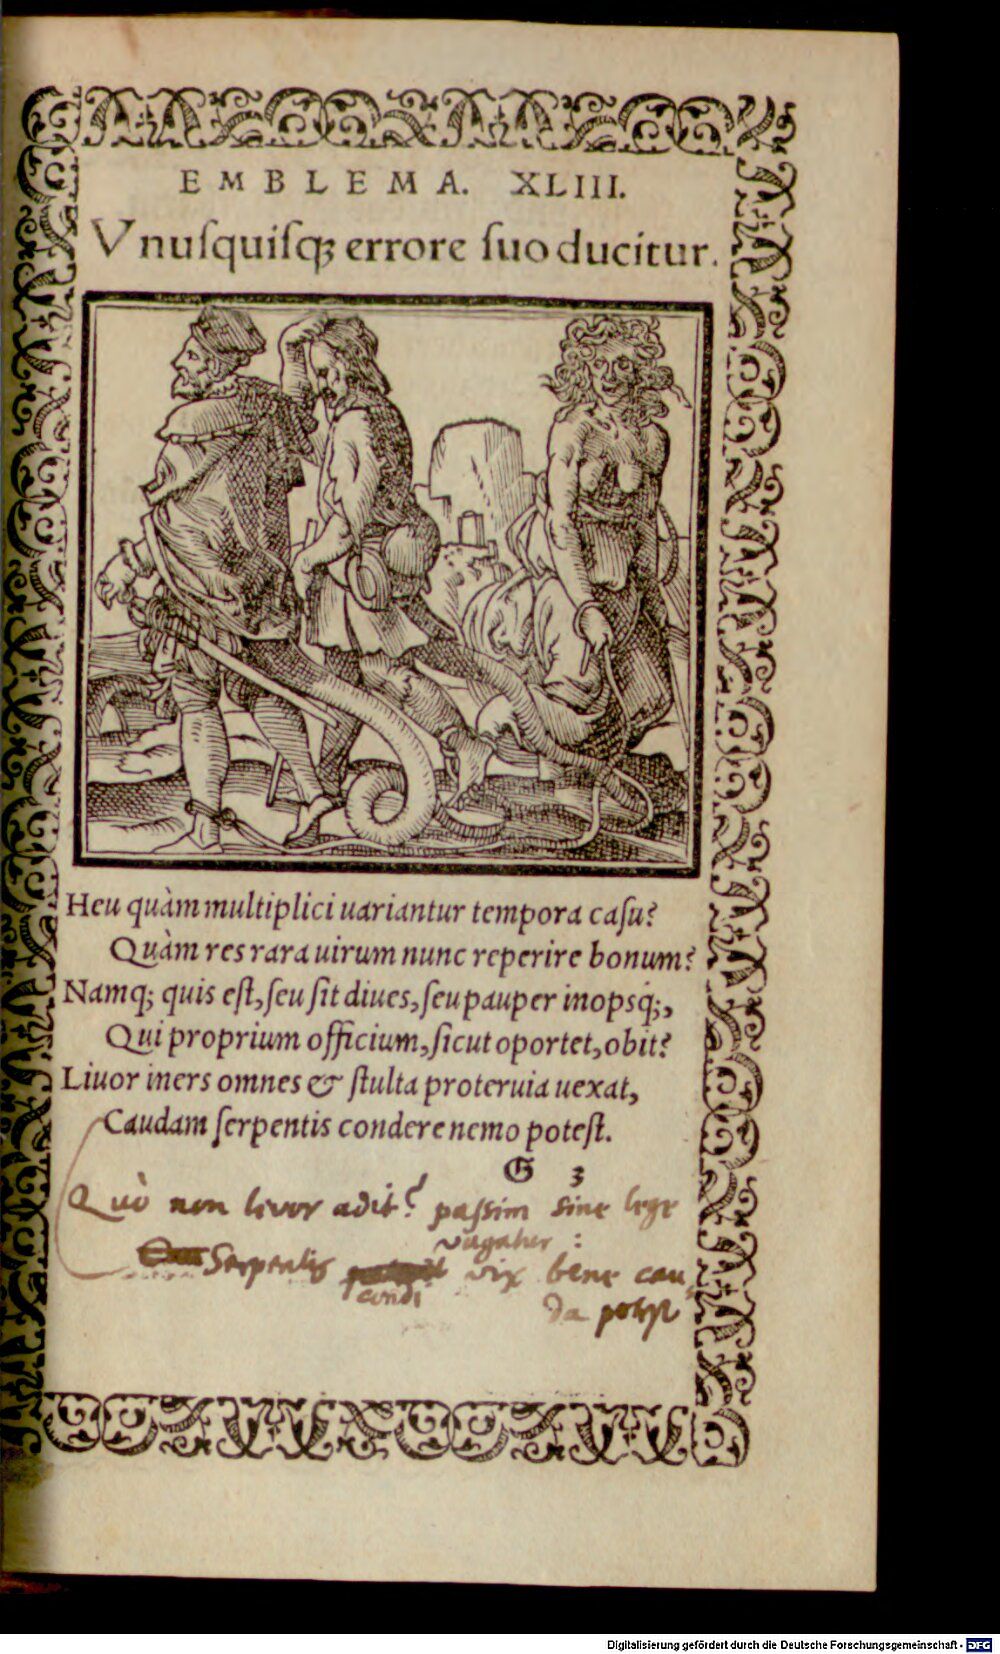 EMBLEMA. XLIII.
Vnuſquiſq; errore ſuo ducitur.
Heu quàm multiplici uariantur tempora caſu?
Quàm res rara uirum nunc reperire bonum?
Namq; quis eſt, ſeu ſit diues, ſeu pauper inopsq́;,
Qui proprium officium, ſicut oportet, obit?
Liuor iners omnes & ſtulta proteruia uexat,
Caudam ſerpentis condere nemo poteſt.
G 3
Quò non livor adit? paſſim sine lege
vagatur :
Serpentis vix bene cau
condi
da potest
Digitalisierung gefördert durch die Deutsche Forschungsgemeinschaft - DFG